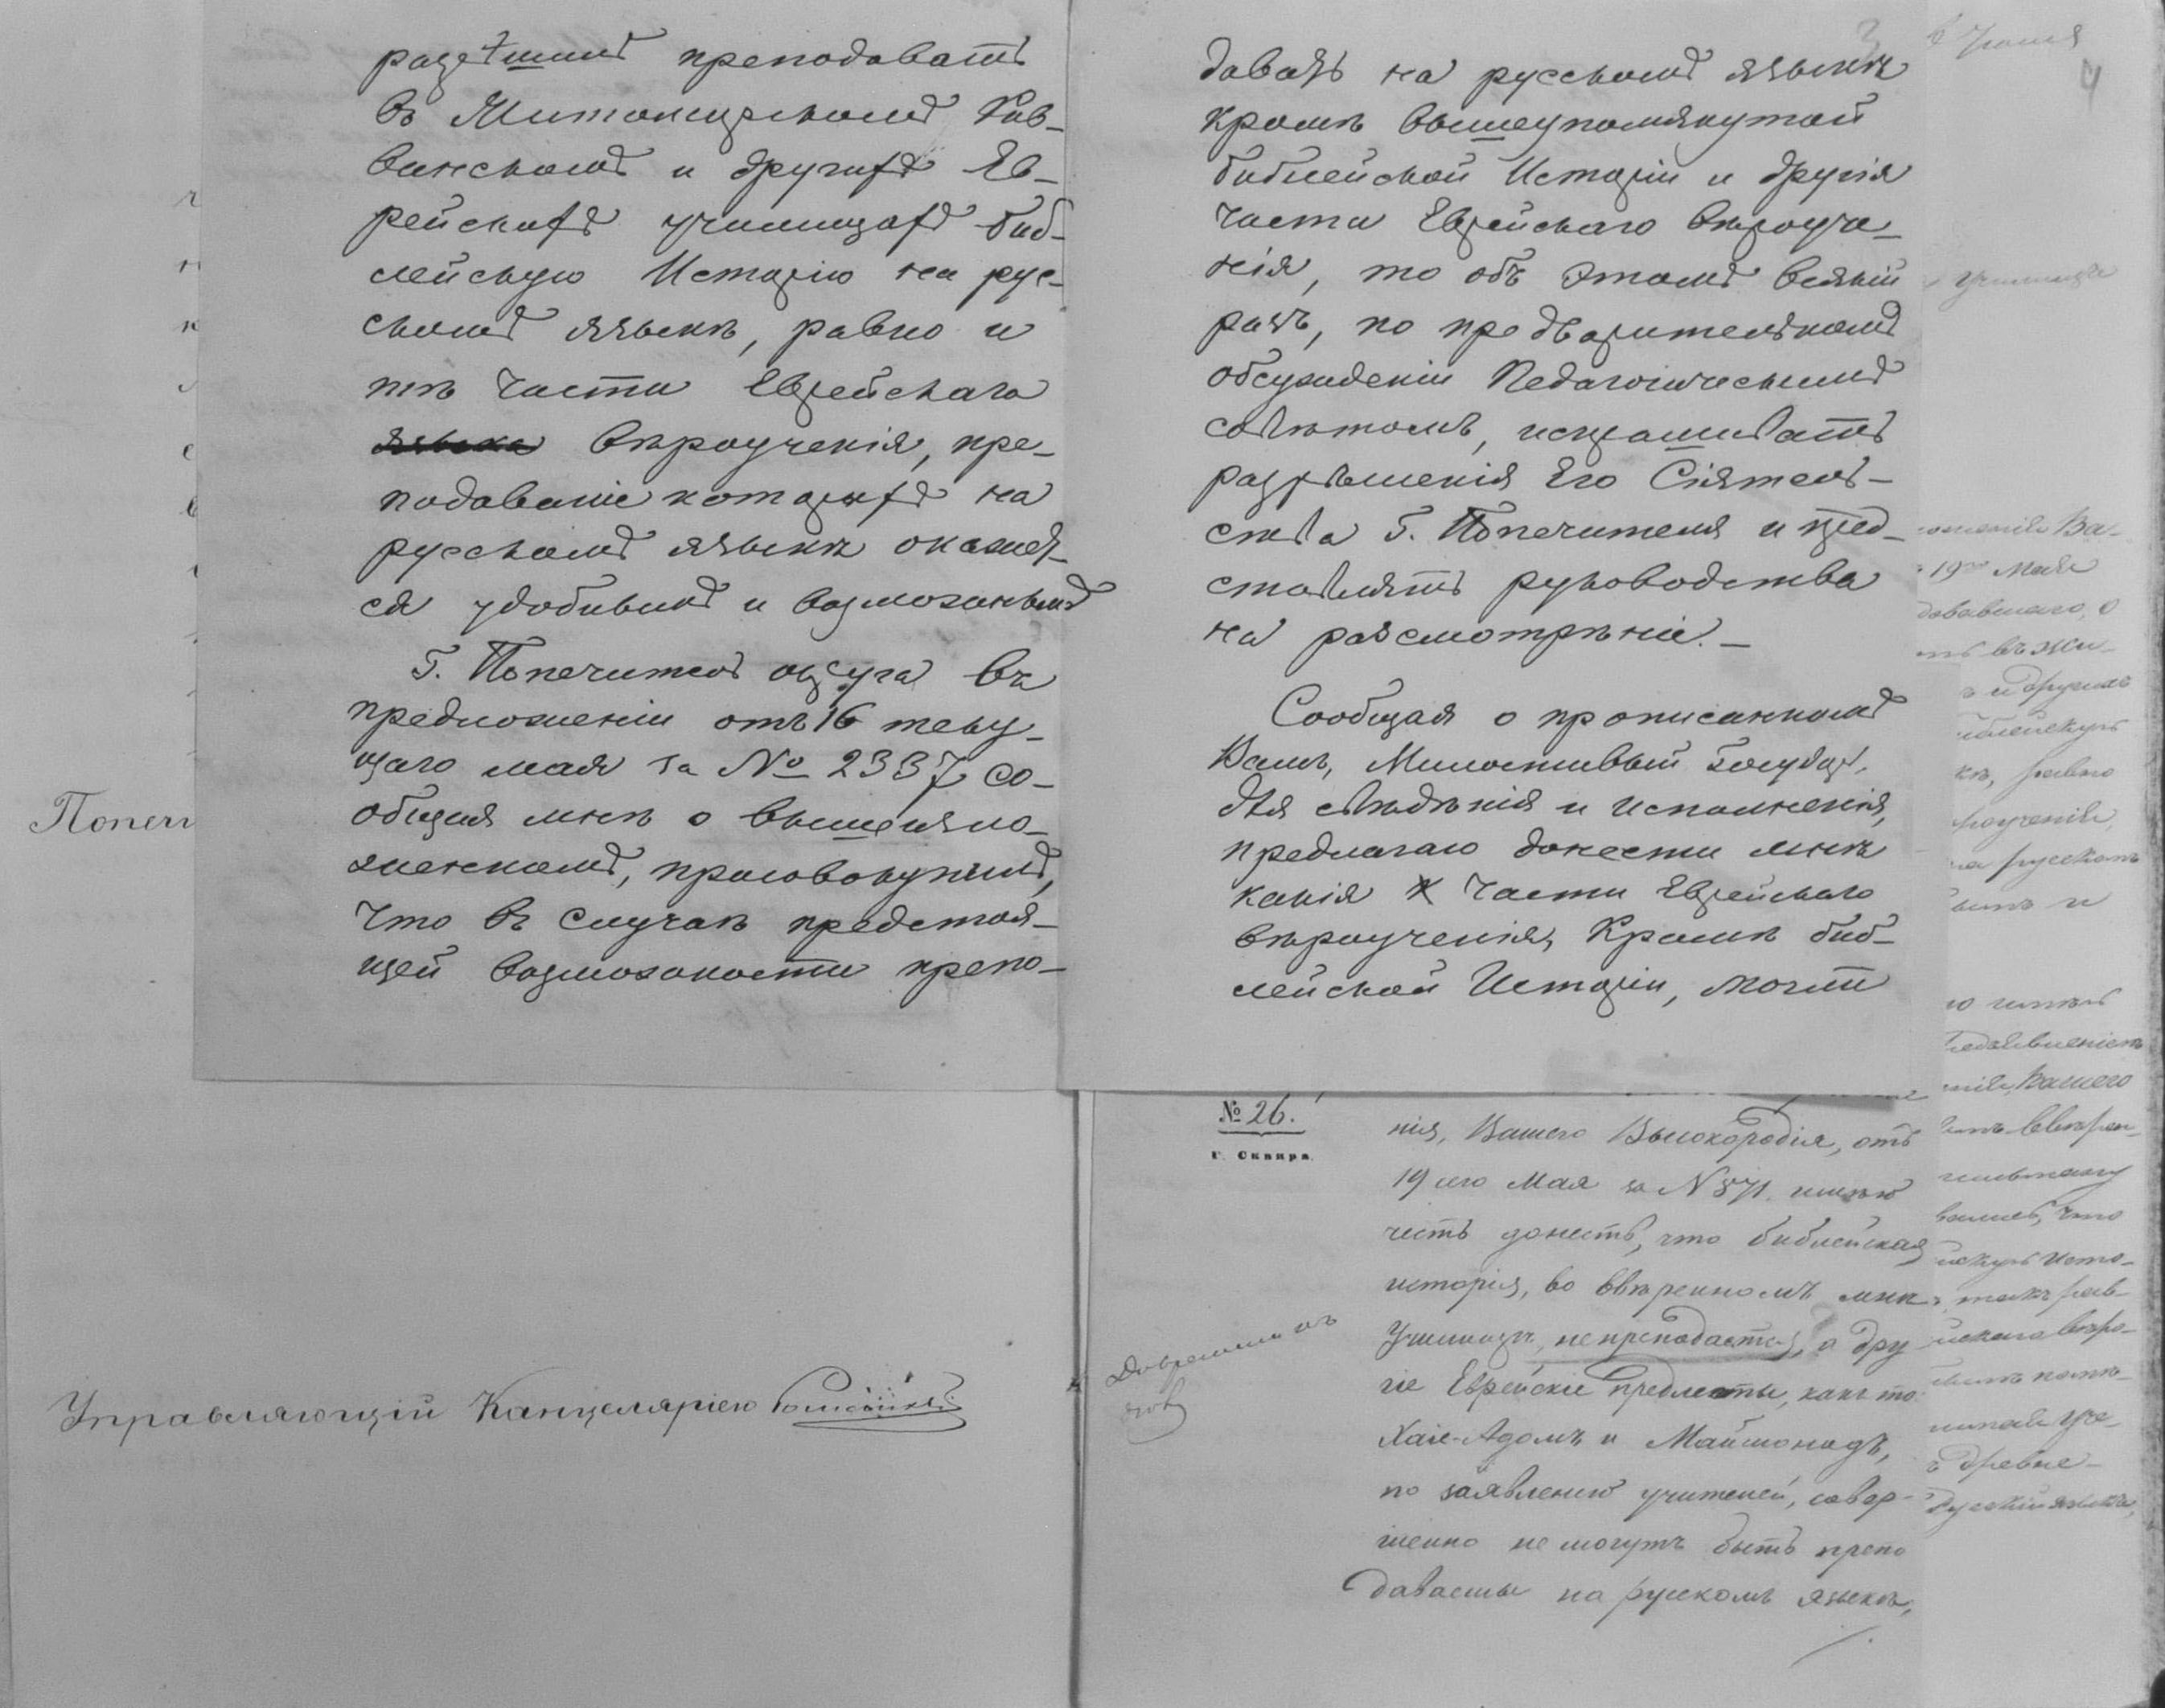 разрѣшилъ преподавать
въ Житомирскомъ Рав-
винскомъ и другихъ Ев-
рейскихъ училищахъ биб-
лейскую Исторію на рус-
скомъ языкѣ, равно и
тѣ части Еврейскаго
языка вѣроученія, пре-
подаваніе которыхъ на
русскомъ языкѣ окажет-
ся удобнымъ и возможнымъ
Г. Попечитель округа въ
предложеніи отъ 16 теку-
щаго мая за № 2337 со-
общая мнѣ о вышеизло-
женномъ, присовокупилъ,
что въ случаѣ предстоя-
щей возможности препо-
давать на русскомъ языкѣ
кромѣ вышеупомянутой
библейской Исторіи и другія
части Еврейскаго вѣроуче-
нія, то объ этомъ всякій
разъ, по предварительномъ
обсужденіи Педагогическимъ
совѣтомъ, испрашивать
разрѣшенія Его Сіятель-
ства Г. Попечителя и пред-
ставлять руководства
на разсмотрѣніе.—
Сообщая о прописанномъ
Вамъ, Милостивый Государь,
для свѣдѣнія и исполненія,
предлагаю донести мнѣ
какія части Еврейскаго
вѣроученія, кромѣ биб-
лейской Исторіи, могутъ
4
Попеч
Управляющій Канцеляріею
№ 26.
г. Сквира.
нія, Вашего Высокородія, отъ
19 сего Мая за № 571. имѣю
честь донесть, что библейская
исторія, во ввѣренномъ мнѣ
Училищѣ, не преподается, а дру
гіе Еврейскіе предметы, какъ то:
Хаіе-Адомъ и Маймонидъ,
по заявленію учителей, совер-
шенно не могутъ быть препо
даваемы на русскомъ языкѣ,
Училище
Ва-
19го Мая
и другихъ
кѣ, равно
роученія,
на русскомъ
Вашего
что
такъ рав-
древне-
русскій языкъ,